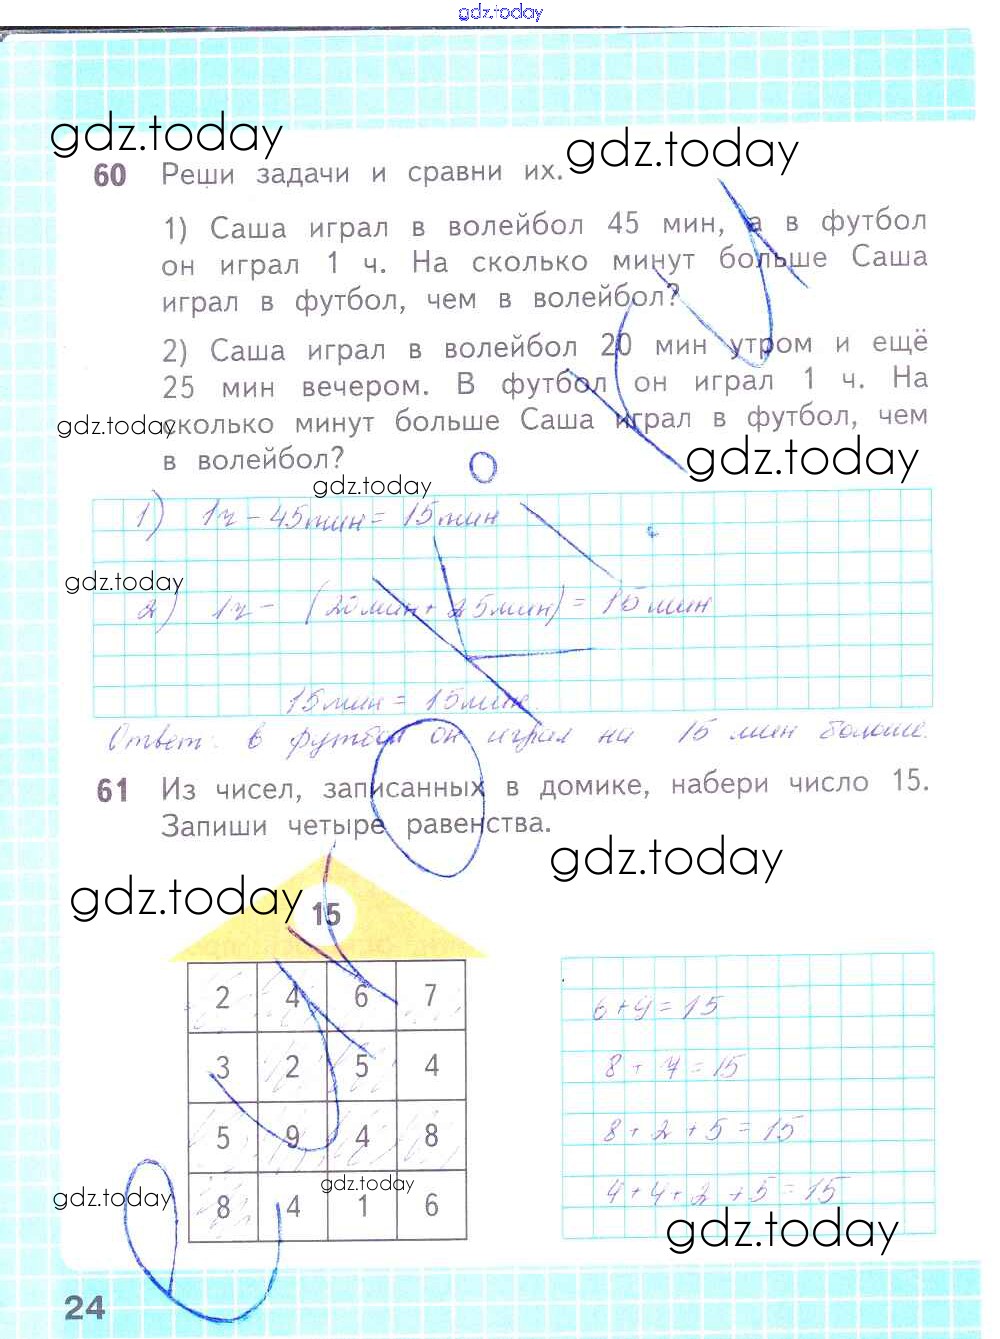 gdz.today
gdz.today
gdz.today
60 Реши задачи и сравни их.
1) Саша играл в волейбол 45 мин, а в футбол
он играл 1 ч. На сколько минут больше Саша
играл в футбол, чем в волейбол?
2) Саша играл в волейбол 20 мин утром и ещё
25 мин вечером. В футбол он играл 1 ч. На
gdz.today
сколько минут больше Саша играл в футбол, чем
в волейбол?
gdz.today
gdz.today
1) 1ч - 45мин = 15мин
gdz.today
2) 1ч - (20мин + 25мин) = 15мин
15мин = 15мин.
Ответ: в футбол он играл на 15 мин больше.
61 Из чисел, записанных в домике, набери число 15.
Запиши четыре равенства.
gdz.today
gdz.today
15
2 4 6 7
3 2 5 4
5 9 4 8
8 4 1 6
6+9=15
8+7=15
8+2+5=15
4+4+2+5=15
gdz.today
gdz.today
gdz.today
24